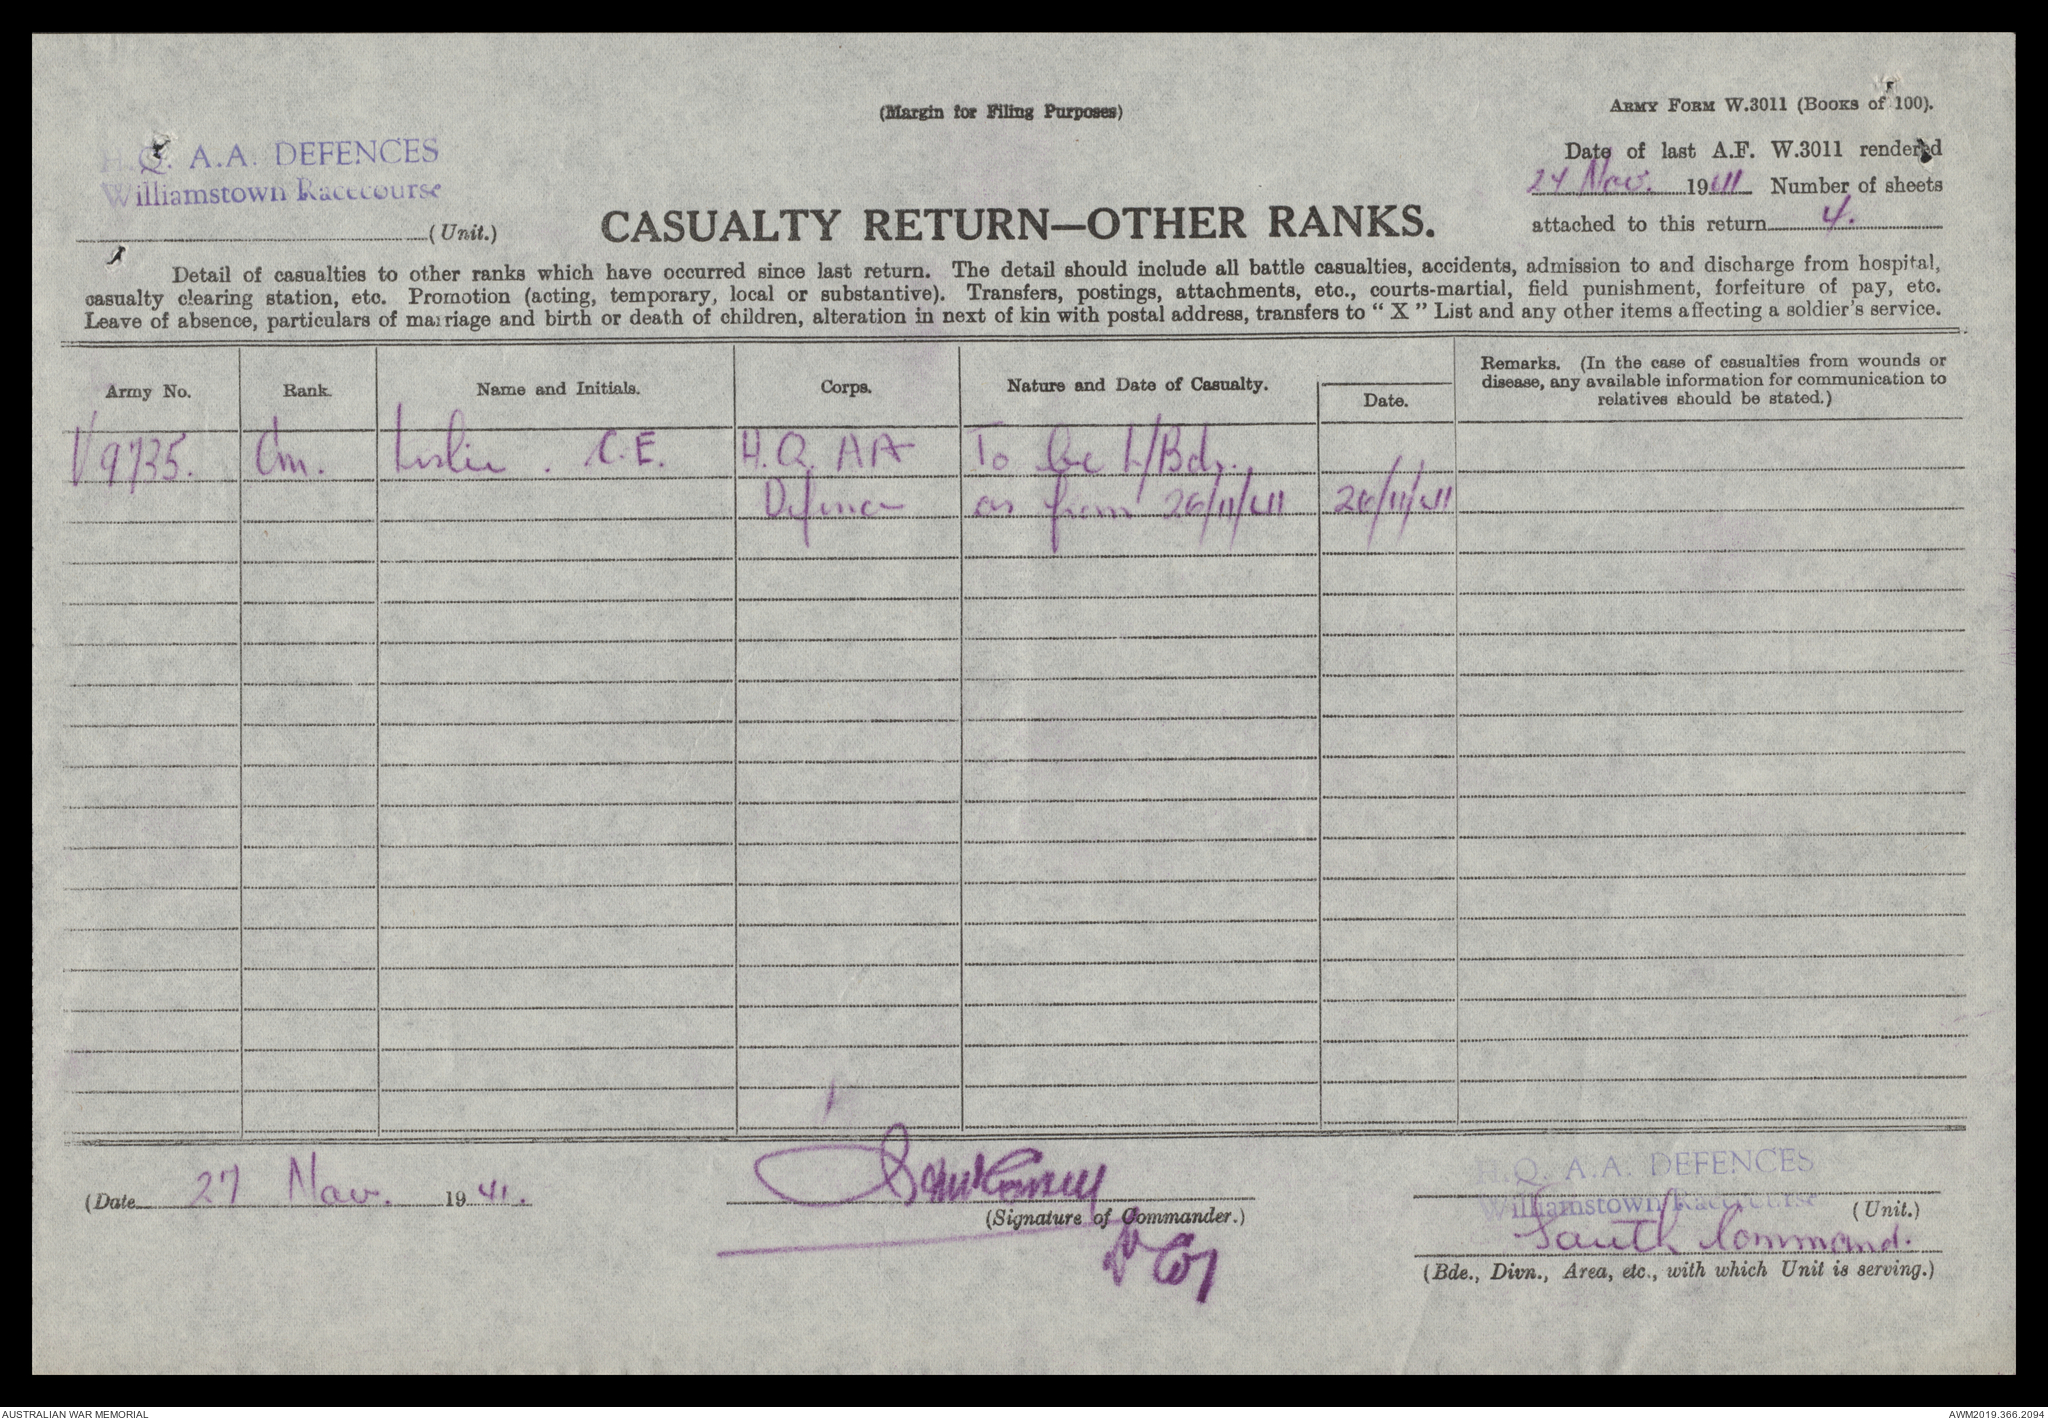 (Margin for Filing Purposes)
ARMY FORM W.3011 (BOOKS of 100).
H.Q. A.A. DEFENCES
Williamstown Racecourse
(Unit.)
Date of last A.F. W.3011 rendered
24 Nov. 1941 Number of sheets
attached to this return 4.
CASUALTY RETURN—OTHER RANKS.
Detail of casualties to other ranks which have occurred since last return. The detail should include all battle casualties, accidents, admission to and discharge from hospital,
casualty clearing station, etc. Promotion (acting, temporary, local or substantive). Transfers, postings, attachments, etc., courts-martial, field punishment, forfeiture of pay, etc.
Leave of absence, particulars of marriage and birth or death of children, alteration in next of kin with postal address, transfers to "X" List and any other items affecting a soldier's service.
Army No. Rank. Name and Initials. Corps. Nature and Date of Casualty. Date. Remarks. (In the case of casualties from wounds or
disease, any available information for communication to
relatives should be stated.)
V9735. Leslie. C.E. H.Q. AA To be L/Bdr.
Defences as from 26/11/41 26/11/41
(Date 27 Nov. 1941.
(Signature of Commander.)
H.Q. A.A. DEFENCES
Williamstown Racecourse
(Unit.)
South Command.
(Bde., Divn., Area, etc., with which Unit is serving.)
AUSTRALIAN WAR MEMORIAL
AWM2019.366.2094